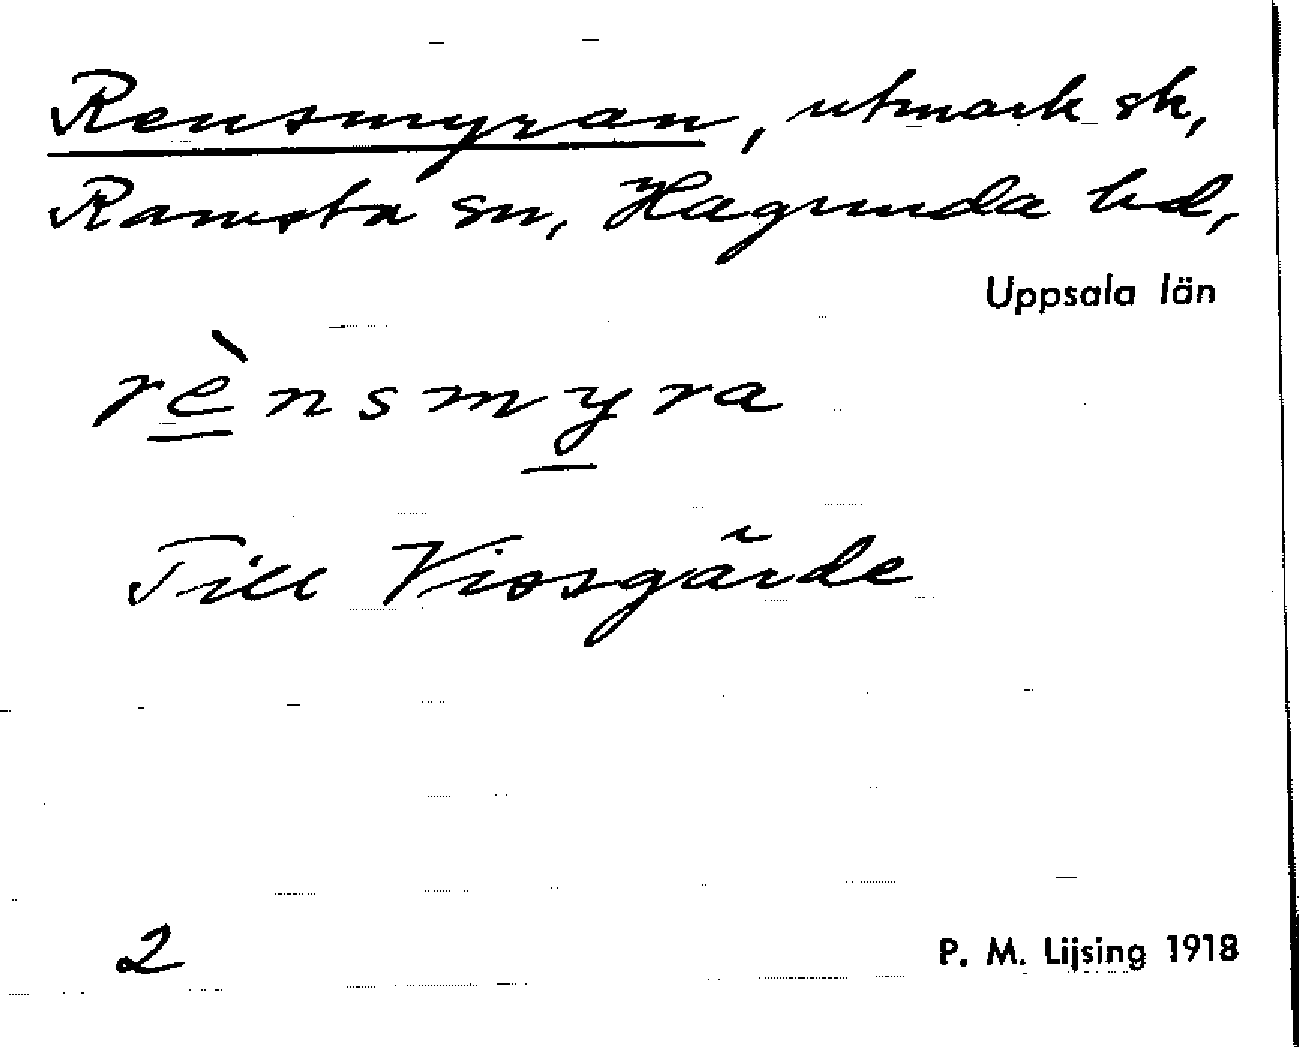 Rensmyran, utmark sk,
Ramsta sn, Hagunda hd,
Uppsala län
rènsmyra
Till Viosgärde
2
P. M. Lijsing 1918